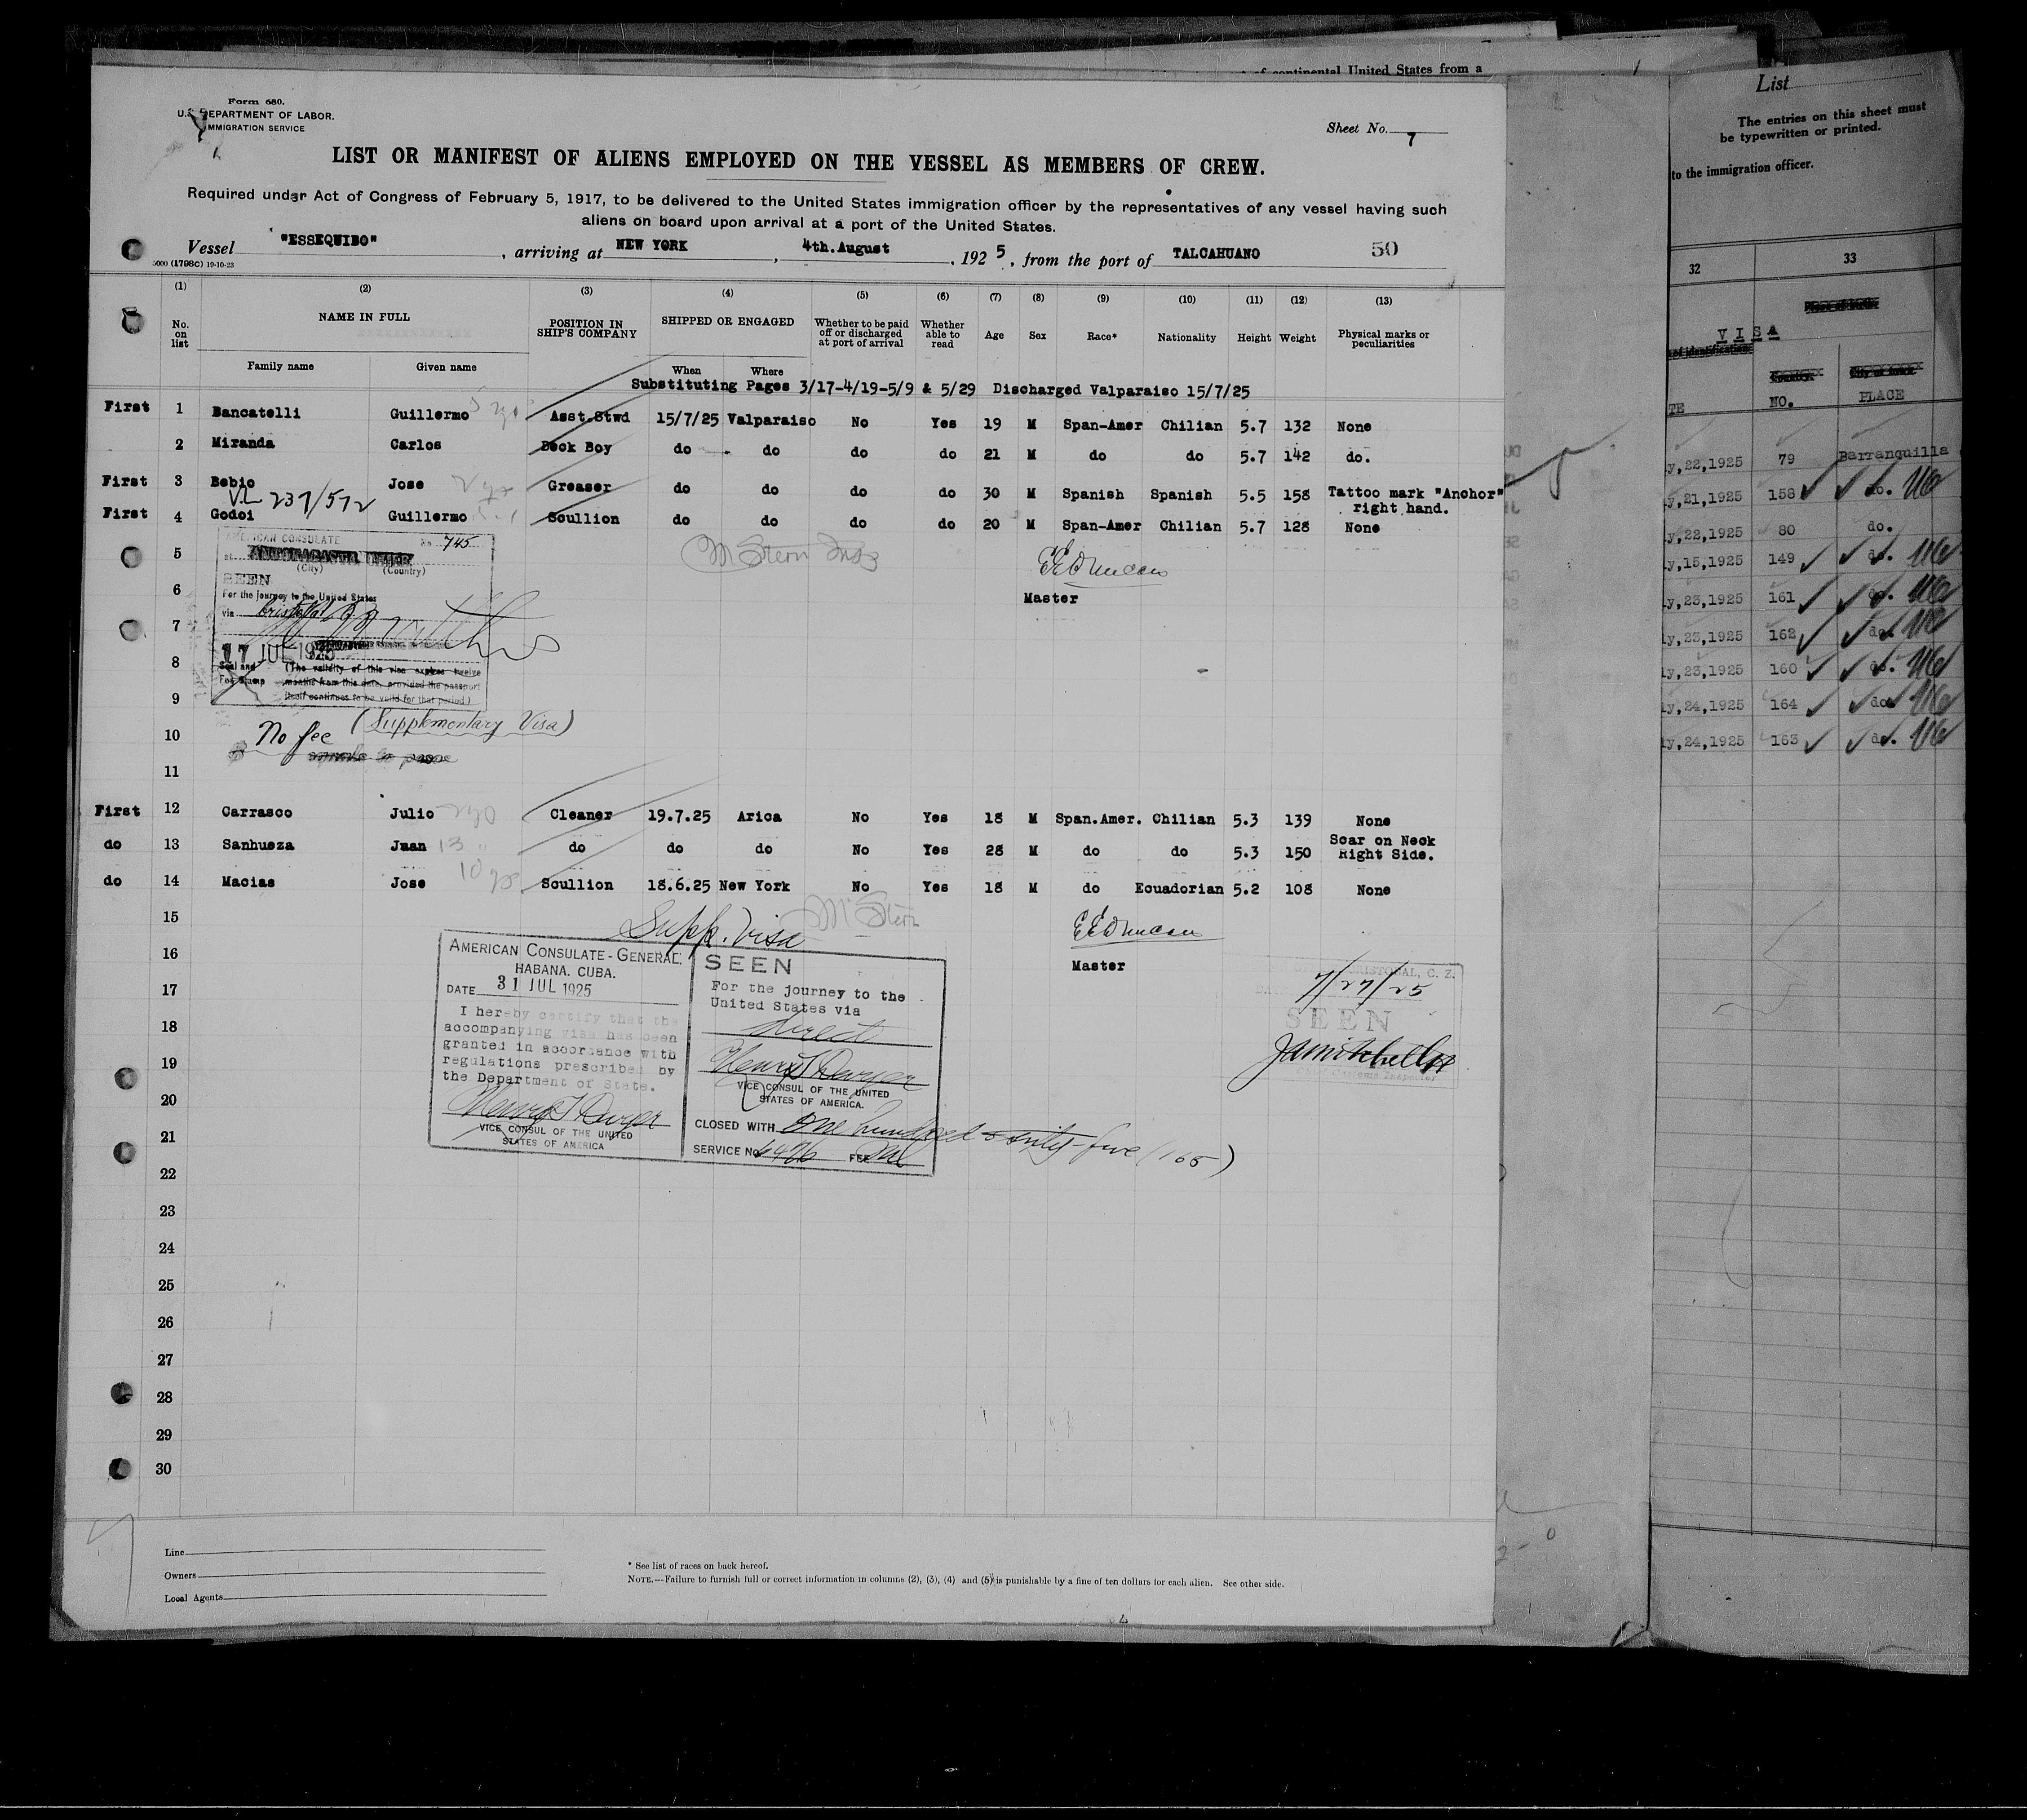 of continental United States from a
Form 680.
U.S. DEPARTMENT OF LABOR.
IMMIGRATION SERVICE
Sheet No. 7
LIST OR MANIFEST OF ALIENS EMPLOYED ON THE VESSEL AS MEMBERS OF CREW.
Required under Act of Congress of February 5, 1917, to be delivered to the United States immigration officer by the representatives of any vessel having such
aliens on board upon arrival at a port of the United States.
Vessel "ESSEQUIBO", arriving at NEW YORK, 4th.August, 1925, from the port of TALCAHUANO 50
5000 (1798C) 19-10-23
(1) (2) (3) (4) (5) (6) (7) (8) (9) (10) (11) (12) (13)
No. on list NAME IN FULL POSITION IN SHIP'S COMPANY SHIPPED OR ENGAGED Whether to be paid off or discharged at port of arrival Whether able to read Age Sex Race* Nationality Height Weight Physical marks or peculiarities
Family name Given name When Where
Substituting Pages 3/17-4/19-5/9 & 5/29 Discharged Valparaiso 15/7/25
First 1 Bancatelli Guillermo Asst.Stwd 15/7/25 Valparaiso No Yes 19 M Span-Amer Chilian 5.7 132 None
2 Miranda Carlos Deck Boy do do do do 21 M do do 5.7 142 do.
First 3 Bebio Jose Greaser do do do do 30 M Spanish Spanish 5.5 158 Tattoo mark "Anchor" right hand.
V.L 237/572
First 4 Godoi Guillermo Scullion do do do do 20 M Span-Amer Chilian 5.7 128 None
AMERICAN CONSULATE No 745
at
(City) (Country)
SEEN
For the journey to the United States
via
17 JUL 1925
Seal and Fee Stamp (The validity of this visa expires twelve
months from this date, provided the passport
itself continues to be valid for that period.)
5
M Stern Insp
EEDuncan
6
Master
7
8
9
10
No fee (Supplementary Visa)
11
First 12 Carrasco Julio Cleaner 19.7.25 Arica No Yes 18 M Span.Amer. Chilian 5.3 139 None
do 13 Sanhueza Juan do do do No Yes 28 M do do 5.3 150 Scar on Neck Right Side.
do 14 Macias Jose Scullion 18.6.25 New York No Yes 18 M do Ecuadorian 5.2 108 None
15
Supp. Visa
M Stern
EEDuncan
16
Master
AMERICAN CONSULATE-GENERAL.
HABANA. CUBA.
DATE 31 JUL 1925
I hereby certify that the
accompanying visa has been
granted in accordance with
regulations prescribed by
the Department of State.
Henry T Dwyer
VICE CONSUL OF THE UNITED
STATES OF AMERICA
SEEN
For the journey to the
United States via
direct
Henry T Dwyer
VICE CONSUL OF THE UNITED
STATES OF AMERICA.
CLOSED WITH One hundred & sixty-five (165)
SERVICE No. FEE
CRISTOBAL, C. Z.
7/27/25
SEEN
Customs Inspector
17
18
19
20
21
22
23
24
25
26
27
28
29
30
Line
Owners
Local Agents
* See list of races on back hereof.
NOTE.—Failure to furnish full or correct information in columns (2), (3), (4) and (5) is punishable by a fine of ten dollars for each alien. See other side.
List
The entries on this sheet must
be typewritten or printed.
to the immigration officer.
32 33
VISA
of identification
NO. PLACE
y,22,1925 79 Barranquilla
y,21,1925 158 do.
y,22,1925 80 do.
y,15,1925 149 do.
y,23,1925 161 do.
y,23,1925 162 do.
y,23,1925 160 do.
y,24,1925 164 do.
y,24,1925 163 do.